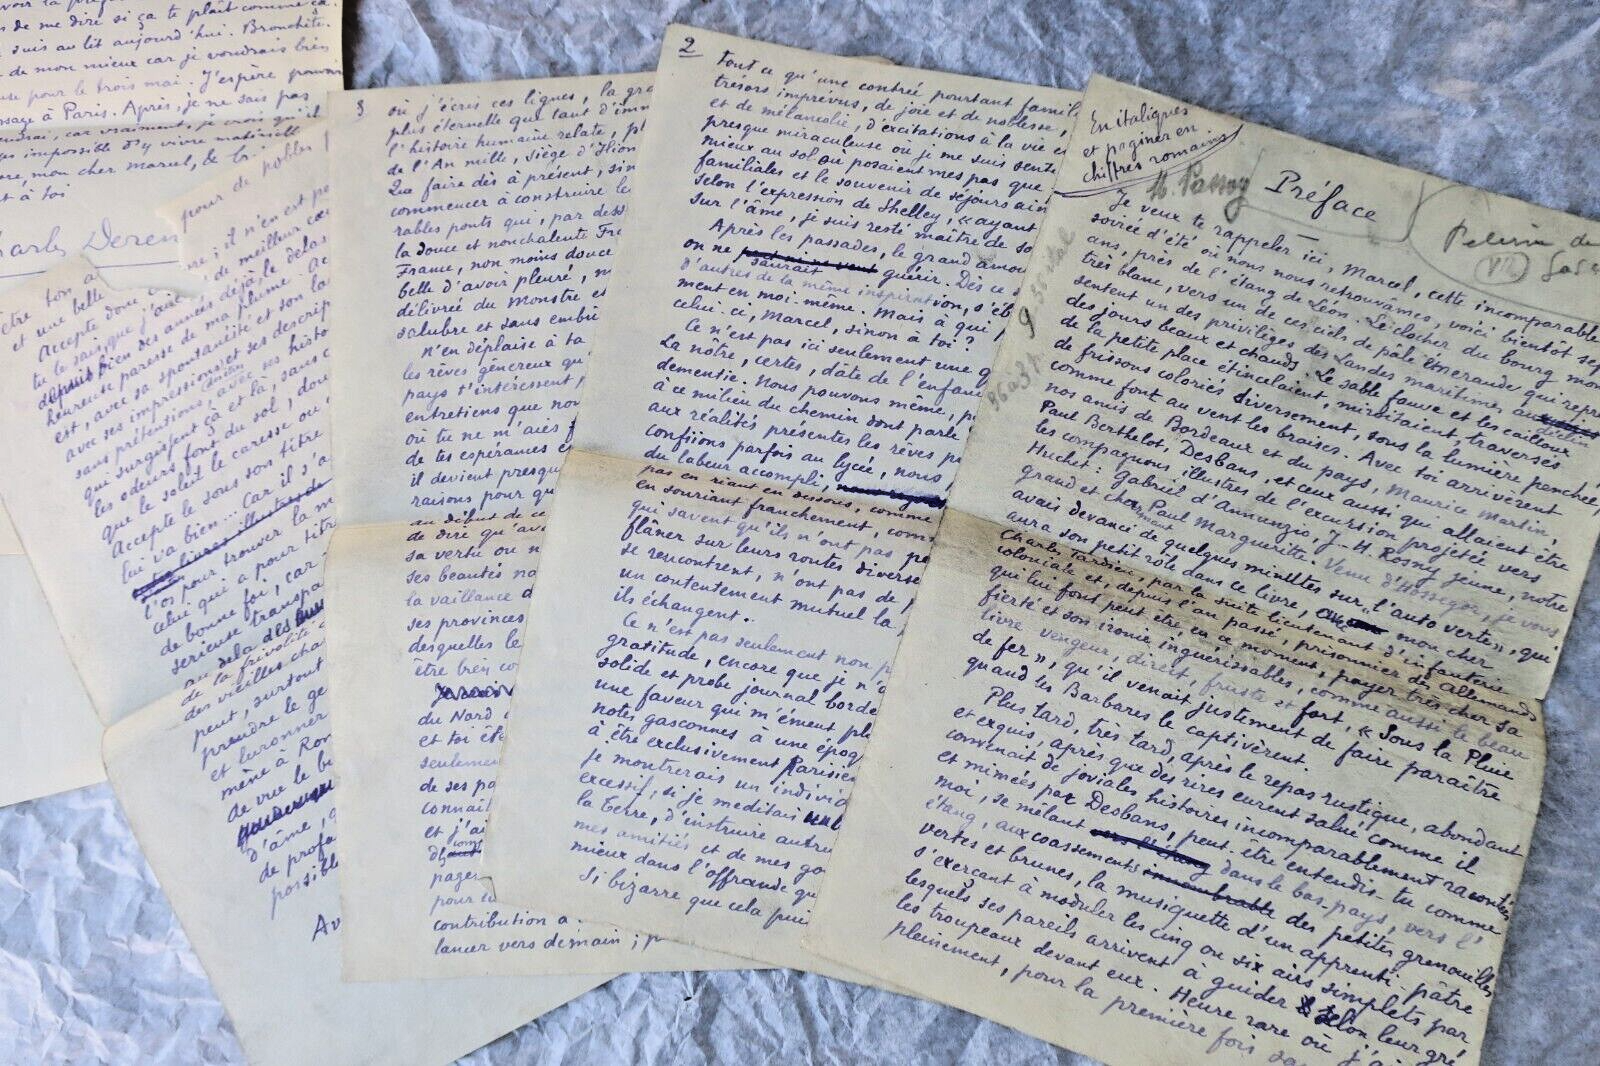 voir la préf
s de me dire si ça te plaît comme ça.
suis au lit aujourd'hui. Bronchite.
de mon mieux car je voudrais bien
use pour le trois mai. J'espère pouvoir
sage à Paris. Après, je ne sais pas
endrai, car vraiment, je crois qu'il
impossible d'y vivre matérielle
mon cher Marcel, de
t à toi
harles Deren
pour de nobles
il n'en est
de meilleur cœ
être ton a
et une belle
Accepte donc
tu le sais, que j'ai
depuis bien des années déjà, le délas
heureuse paresse de ma plume. Ac
est, avec sa spontanéité et son la
avec ses impressions et ses descrip
sans prétentions, avec ses histo
qui surgissent çà et là, sans
les odeurs font du sol, dou
que le soleil le caresse ou
Accepte le sous son titre
lui va bien... Car il s'a
l'os pour trouver la m
celui qui a pour titre
de bonne foi, car
serieuse transpa
au dela des
de la frivolité
des vieilles cha
peut, surtout
prendre le ge
et luronner
mène à Rom
de vue le b
d'âme, q
de profa
possible
Av
3
où j'écris ces lignes, la gra
plus éternelle que tant d'imm
l'histoire humaine relate, pl
de l'An mille, siège d'Ilion
Que faire dès à présent, sin
commencer à construire le
rables ponts qui, par dess
la douce et nonchalente Fra
France, non moins douce
belle d'avoir pleuré, m
délivrée du Monstre es
salubre et sans embû
N'en déplaise à ta
les rêves généreux qu
pays t'intéressent,
entretiens que nou
où tu ne m'aies
de tes espérances e
il devient presqu
raisons pour qu
au début de ce
de dire qu'av
sa vertu ou n
ses beautés na
la vaillance d
ses provinces
desquelles le
être bien co
du Nord
et toi ête
seulemen
de ses pa
connaît
et j'ai
pages
pour
contribution a
lancer vers demain ; p
2
Tout ce qu'une contrée pourtant famil
trésors imprévus, de joie et de noblesse,
et de mélancolie, d'excitations à la vie e
presque miraculeuse où je me suis sent
mieux au sol où posaient mes pas que
familiales et le souvenir de séjours ain
selon l'expression de Shelley, « ayant
sur l'âme, je suis resté maître de so
Après les passades, le grand amou
on ne saurait guérir. Dès ce s
d'autres de la même inspiration, s'éb
ment en moi-même. Mais à qui
celui-ci, Marcel, sinon à toi ?
Ce n'est pas ici seulement une q
La nôtre, certes, date de l'enfan
dementie. Nous pouvons même, p
à ce milieu du chemin dont parle
aux réalités présentes les rêves p
confiions parfois au lycée, nous
du labeur accompli,
pas en riant en dessous, comme
en souriant franchement, com
qui savent qu'ils n'ont pas pe
flâner sur leurs routes diverse
se rencontrent, n'ont pas de p
un contentement mutuel la
ils échangent..
Ce n'est pas seulement non p
gratitude, encore que je n'a
solide et probe journal borde
une faveur qui m'émeut pl
notes gasconnes à une époq
à être exclusivement Parisie
je montrerais un individ
excessif, si je meditais un
la terre, d'instruire autru
mes amitiés et de mes go
mieux dans l'offrande qu
Si bizarre que cela pui
En italiques
et paginer en
chiffres romains
Préface
Pelerin de
VII
Gas
9 36 ital
Je veux te rappeler ici, Marcel, cette incomparable
soirée d'été où nous nous retrouvâmes, voici bientôt sep
ans, près de l'étang de Léon. Le clocher du bourg mon
très blanc, vers un de ces ciels de pâle émeraude qui repré
sentent un des privilèges des Landes maritimes au déclin
des jours beaux et chauds. Le sable fauve et les cailloux
de la petite place étincelaient, miroitaient, traversés
de frissons coloriés diversement, sous la lumière penchée,
comme font au vent les braises. Avec toi arrivèrent
nos amis de Bordeaux et du pays, Maurice Martin,
Paul Berthelot, Desbans, et ceux aussi qui allaient être
les compagnons illustres de l'excursion projetée vers
Huchet : Gabriel d'Annunzio, J.-H. Rosny jeune, notre
grand et charmant Paul Margueritte. Venu d'Hossegor, je vous
avais devancé de quelques minutes sur « l'auto verte », qui
aura son petit rôle dans ce livre, mon cher
Charles Tardieu, par la suite lieutenant d'infanterie
coloniale et, depuis l'an passé, prisonnier des Allemands
qui lui font peut être, en ce moment, payer très cher sa
fierté et son ironie inguérissables, comme aussi le beau
livre vengeur, direct, fruste et fort, « Sous la Pluie
de fer », qu'il venait justement de faire paraître
quand les Barbares le captivèrent.
Plus tard, très tard, après le repas rustique, abondant
et exquis, après que des rires eurent salué comme il
convenait de joviales histoires incomparablement racontées
et mimées par Desbans, peut-être entendis-tu comme
moi, se mêlant dans le bas-pays, vers l'
étang, aux coassements des petites grenouilles
vertes et brunes, la musiquette d'un apprenti-pâtre
s'exerçant à moduler les cinq ou six airs simplets par
lesquels ses pareils arrivent à guider selon leur gré
les troupeaux devant eux. Heure rare où j'ai
pleinement, pour la première fois sa